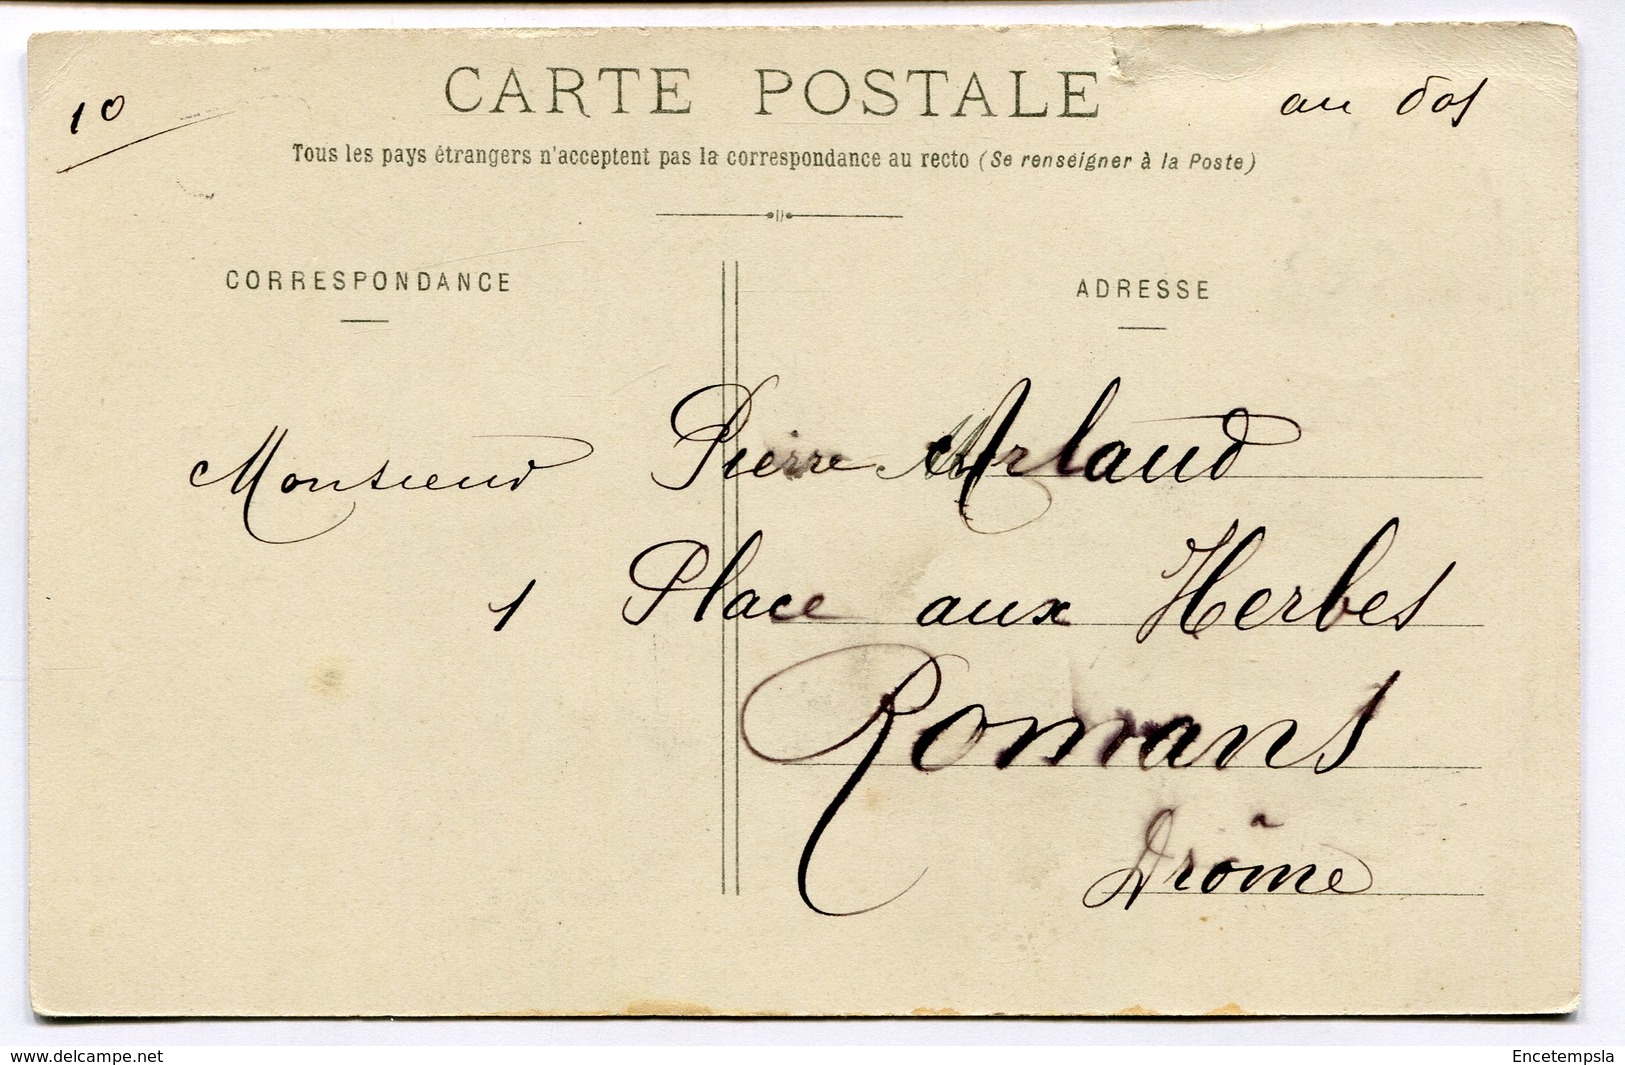 10
CARTE POSTALE
au dos
Tous les pays étrangers n'acceptent pas la correspondance au recto (Se renseigner à la Poste)
CORRESPONDANCE
ADRESSE
Monsieur Pierre Arlaud
1 Place aux Herbes
Romans
Drôme
www.delcampe.net
Encetempsla